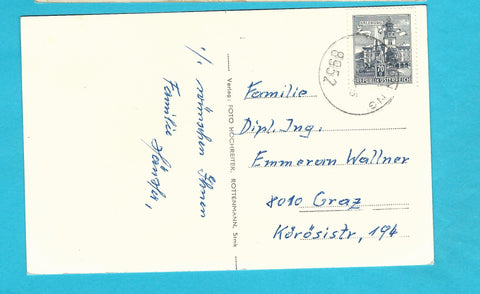 ½ wünschen Ihnen
Familie
Verlag: FOTO HOCHREITER, ROTTENMANN, Stmk
8952
REPUBLIK ÖSTERREICH
Familie
Dipl. Ing.
Emmeram Wallner
8010 Graz
Körösistr. 194